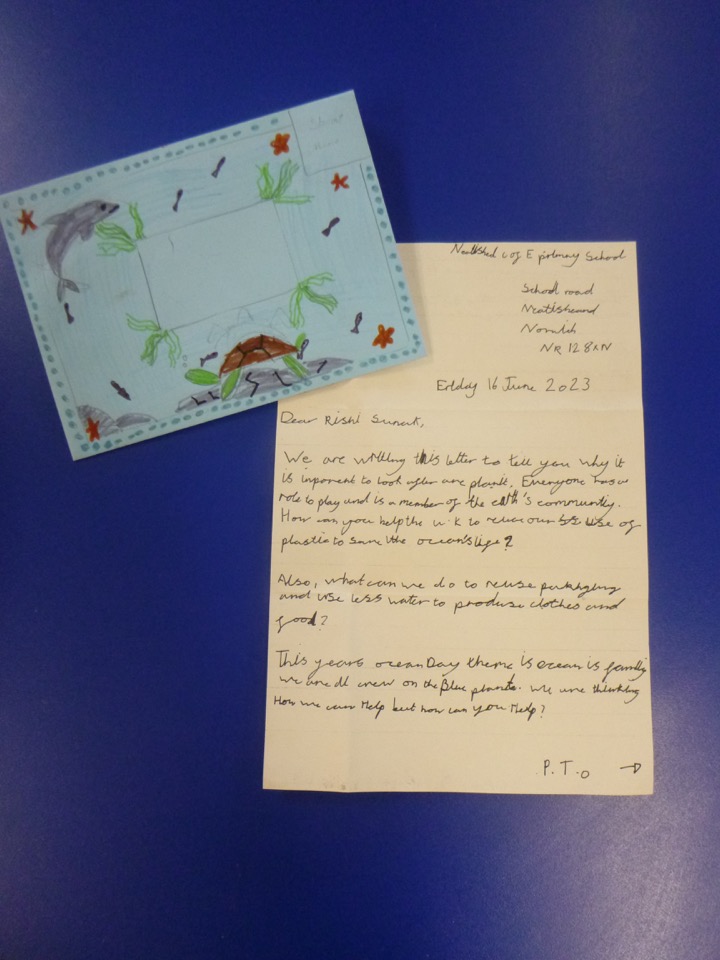 Neatished C of E primary School
School road
Neatishead
Norwich
NR12 8XN
Friday 16 June 2023
Dear Rishi Sunak,
We are writing this letter to tell you why it
is inporent to look after are planit. Everyone has a
role to play and is a member of the earth's community.
How can you help the U.K to reduce our use of
plastic to save the ocean's life?
Also, what can we do to reuse packaging
and use less water to produse clothes and
food?
This years ocean Day theme is ocean is family
we are all crew on the Blue planet. We are thinking
How we can Help but how can you Help?
P.T.O →